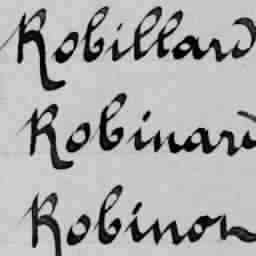 Robillard
Robinard
Robinon